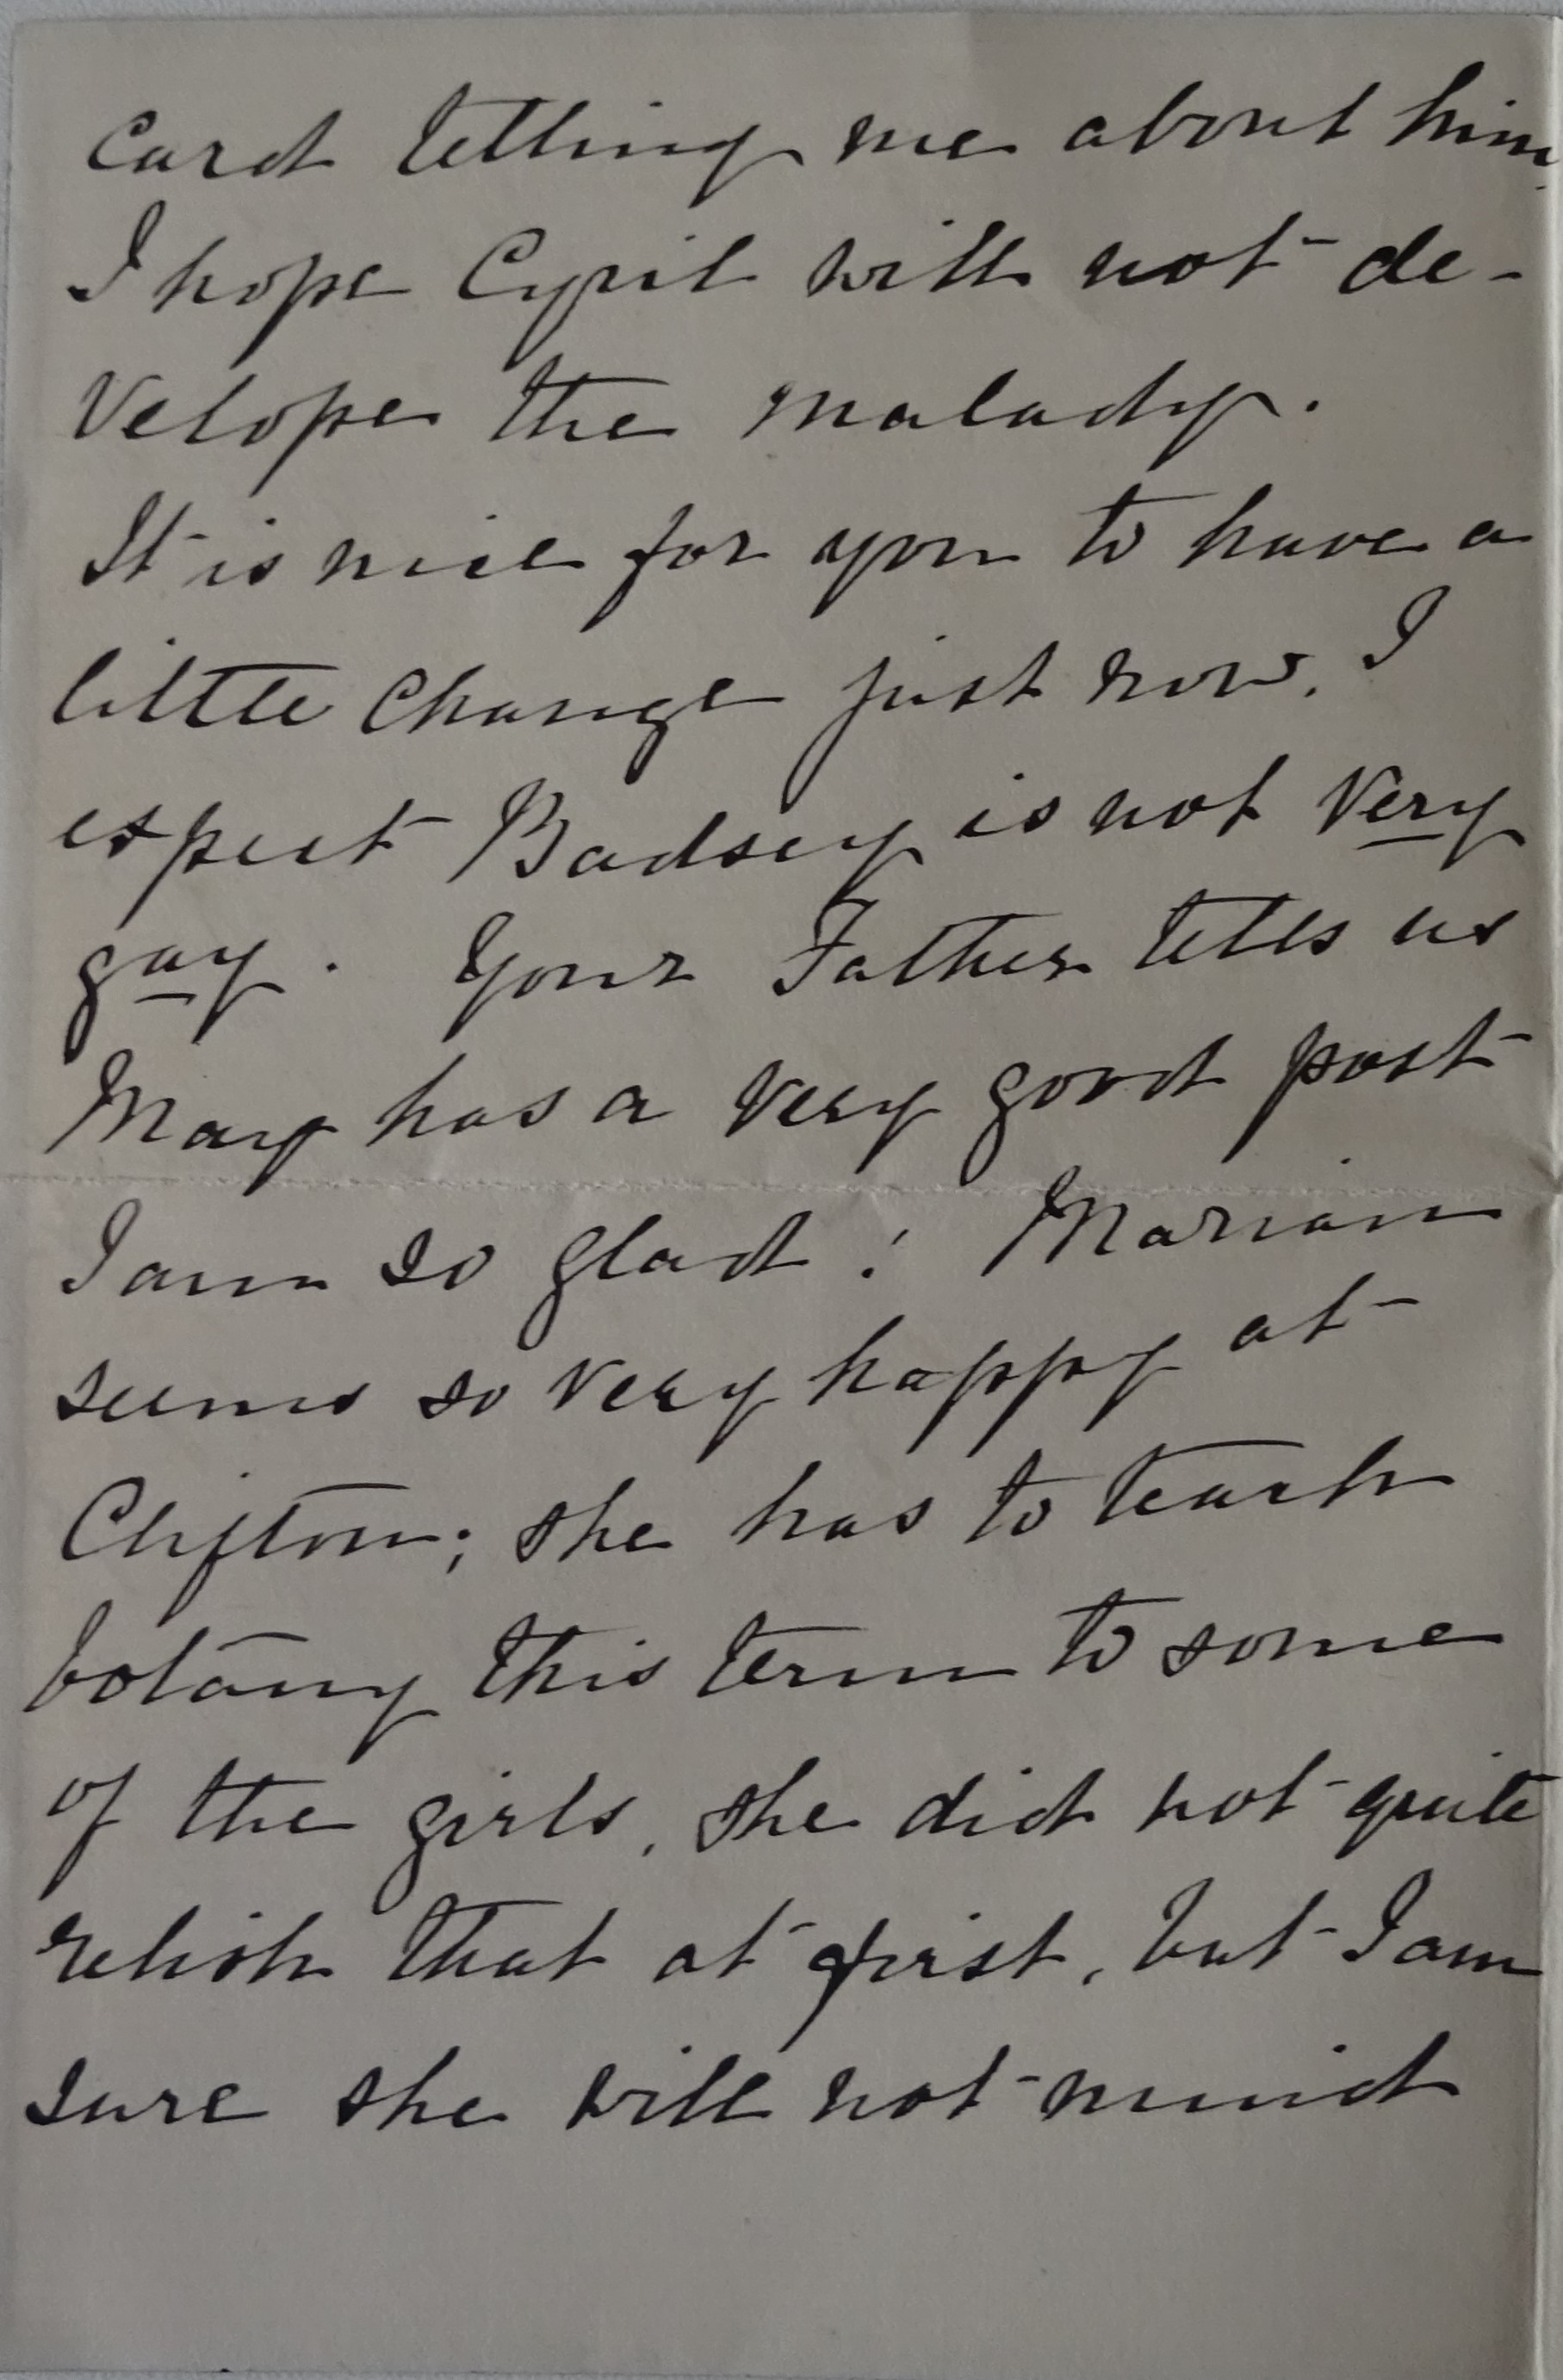 Card telling me about him.
I hope Cyril will not de-
velope the malady.
It is nice for you to have a
little change just now. I
expect Badsey is not very
gay. Your Father tells us
May has a very good post
I am so glad! Marian
seems so very happy at
Clifton; she has to teach
botany this term to some
of the girls, she did not quite
relish that at first, but I am
sure she will not mind